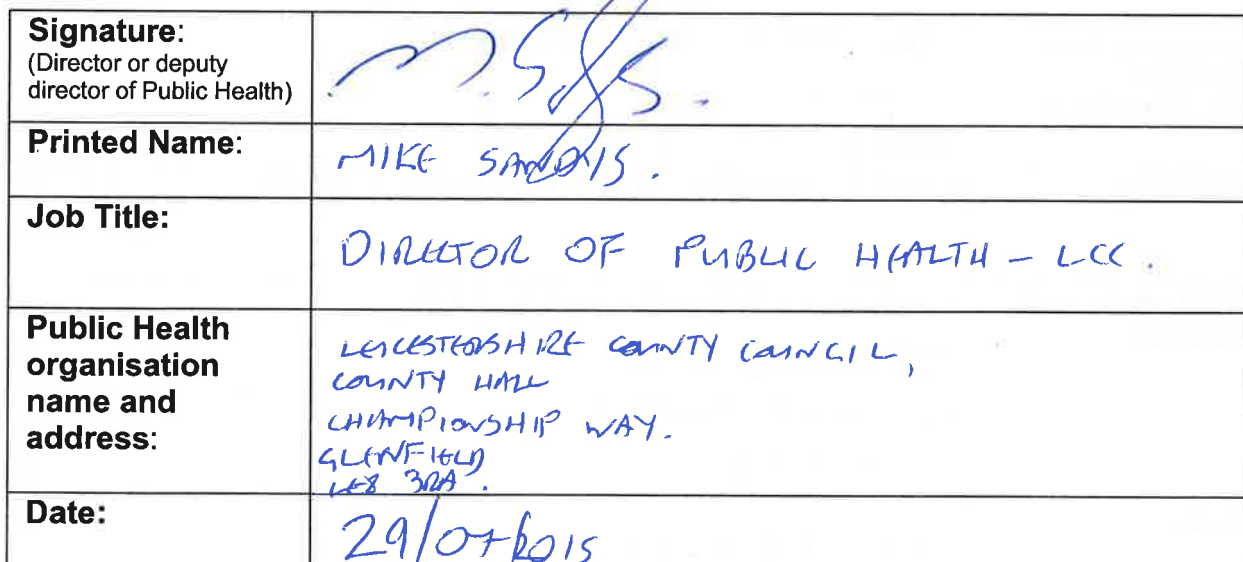 Signature:
(Director or deputy
director of Public Health)
M. S
Printed Name:
MIKE SANDYS.
Job Title:
DIRECTOR OF PUBLIC HEALTH - LCC.
Public Health
organisation
name and
address:
LEICESTERSHIRE COUNTY COUNCIL,
COUNTY HALL
CHAMPIONSHIP WAY.
GLENFIELD
LE8 3RA.
Date:
29/07/2015